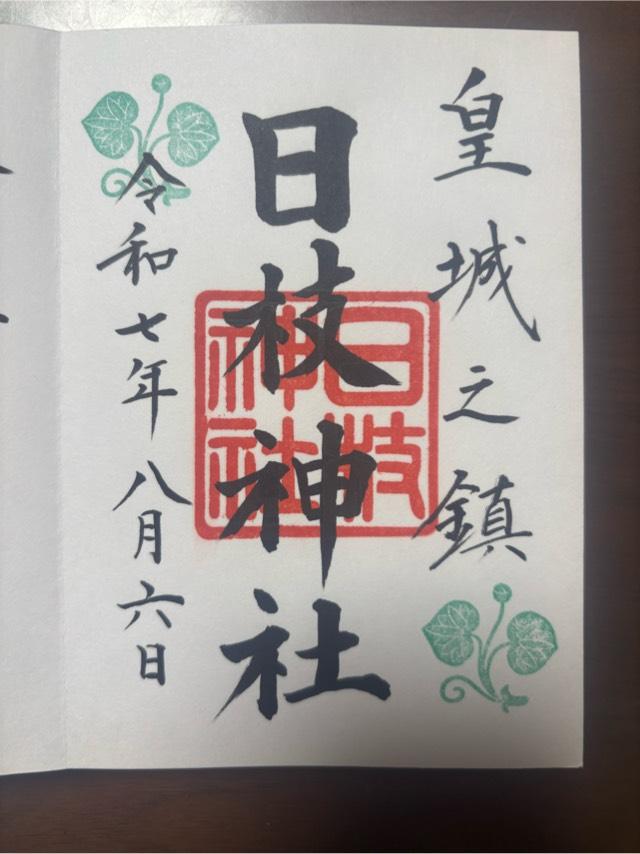 皇城之鎮
日枝神社
日枝神社
令和七年八月六日